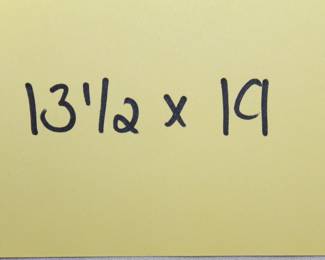 13 1/2 x 19